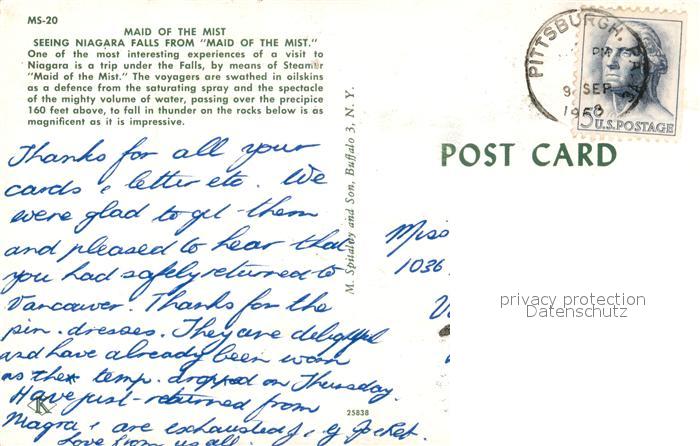 MS-20
MAID OF THE MIST
SEEING NIAGARA FALLS FROM "MAID OF THE MIST."
One of the most interesting experiences of a visit to
Niagara is a trip under the Falls, by means of Steamer
"Maid of the Mist." The voyagers are swathed in oilskins
as a defence from the saturating spray and the spectacle
of the mighty volume of water, passing over the precipice
160 feet above, to fall in thunder on the rocks below is as
magnificent as it is impressive.
PITTSBURGH, PA.
PM
9 SEP
5¢ U.S. POSTAGE
POST CARD
M. Spitalny and Son, Buffalo 3, N. Y.
Thanks for all your
cards & letter etc. We
were glad to get them
and pleased to hear that
you had safely returned to
Vancouver. Thanks for the
pin. dresses. They are delightful
and have already been worn
as the temp. dropped on Thursday.
Have just returned from
Niagra & are exhausted &
Love from us all.
K
25838
Miss
1036
V
privacy protection
Datenschutz